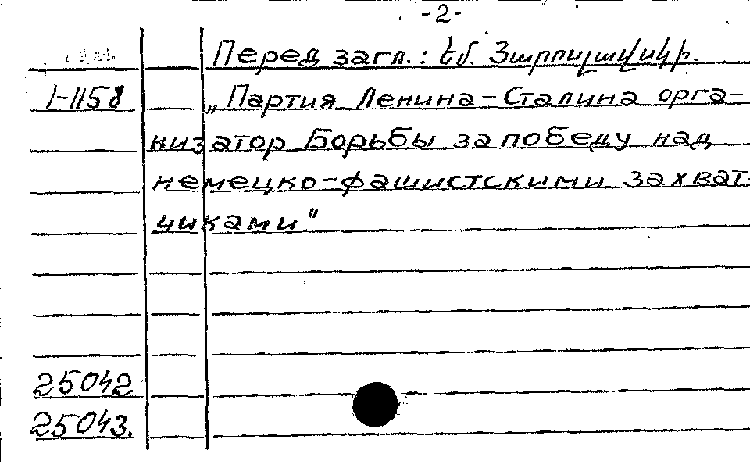 -2-
Перед загл.: Եմ. Յարոսլավսկի.
1-1158 „Партия Ленина-Сталина орга-
низатор борьбы за победу над
немецко-фашистскими захват-
чиками"
25042
25043.